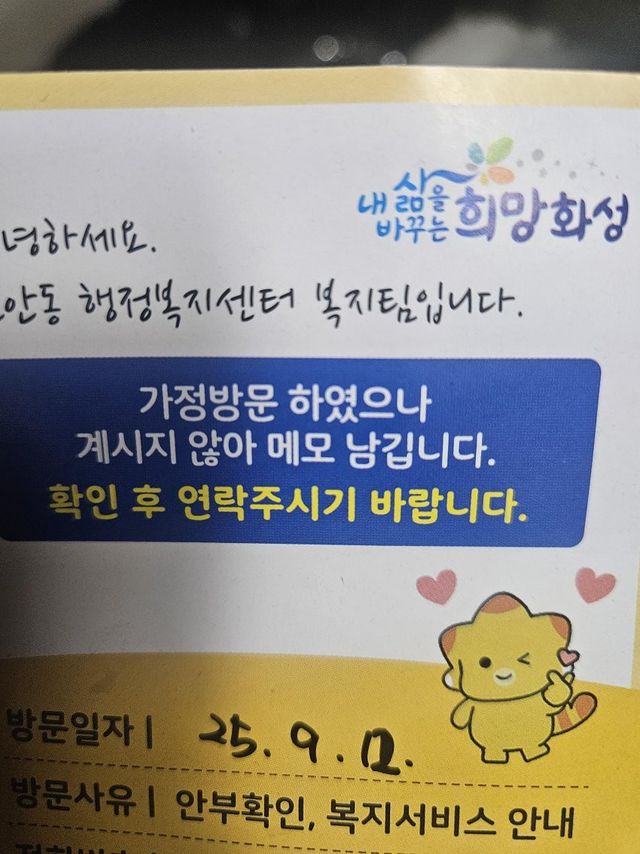 내 삶을
바꾸는 희망화성
녕하세요.
안동 행정복지센터 복지팀입니다.
가정방문 하였으나
계시지 않아 메모 남깁니다.
확인 후 연락주시기 바랍니다.
방문일자 | 25. 9. 12.
방문사유 | 안부확인, 복지서비스 안내